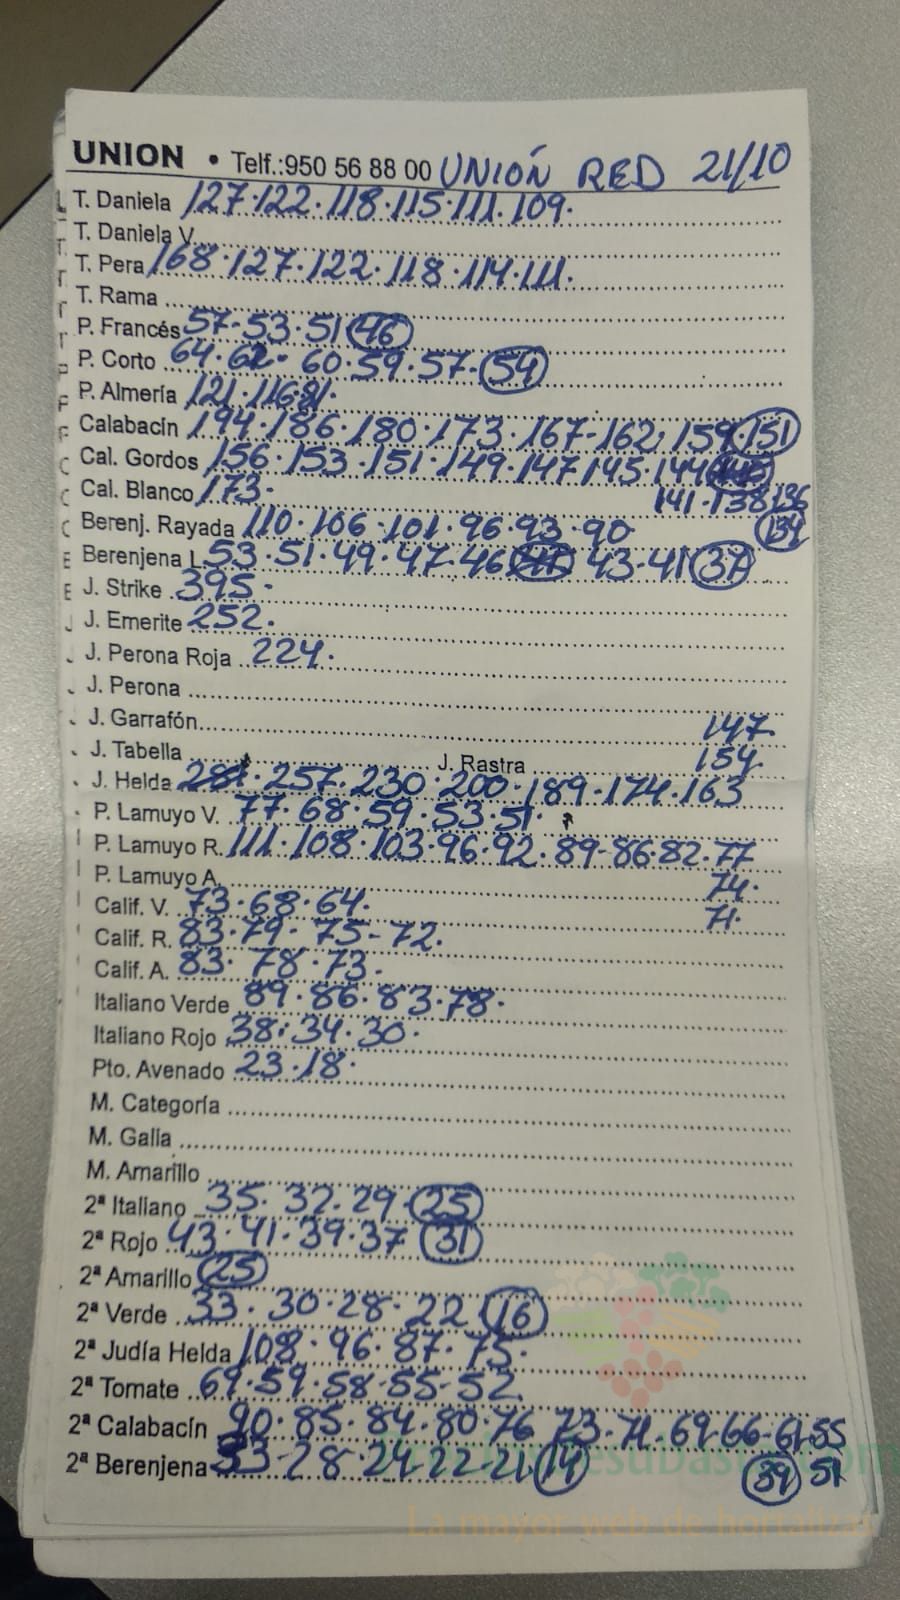 UNION • Telf.:950 56 88 00 UNIÓN RED 21/10
T. Daniela 127·122·118·115·111·109·
T. Daniela V.
T. Pera 168·127·122·118·114·111·
T. Rama
P. Francés 57-53·51 46
P. Corto 64·62· 60·59·57· 54
P. Almería 121·116·81·
Calabacín 194·186·180·173·167-162· 159· 151
Cal. Gordos 156·153·151·149·147 145·144
Cal. Blanco 173· 141·138 136
Berenj. Rayada 110·106·101·96·93·90 134
Berenjena L 53·51·49·47·46 43·41 37
J. Strike 395·
J. Emerite 252·
J. Perona Roja 224·
J. Perona
J. Garrafón 147·
J. Tabella J. Rastra 154·
J. Helda 281·257·230·200·189·174·163
P. Lamuyo V. 77·68·59·53·51·
P. Lamuyo R. 111·108·103·96·92·89-86·82·77
P. Lamuyo A. 74·
Calif. V. 73·68·64· 71·
Calif. R. 83·79·75-72·
Calif. A. 83·78·73·
Italiano Verde 89·86·83·78·
Italiano Rojo 38·34·30·
Pto. Avenado 23·18·
M. Categoría
M. Galia
M. Amarillo
2ª Italiano 35·32·29· 25
2ª Rojo 43·41·39·37 31
2ª Amarillo 25
2ª Verde 33·30·28·22 16
2ª Judía Helda 108·96·87·75·
2ª Tomate 69·59·58-55-52
2ª Calabacín 90·85·84·80·76 73·71·69·66-61·55
2ª Berenjena 33-28·24·22-21· 14 39 51
preciosesubasta.com
La mayor web de hortalizas